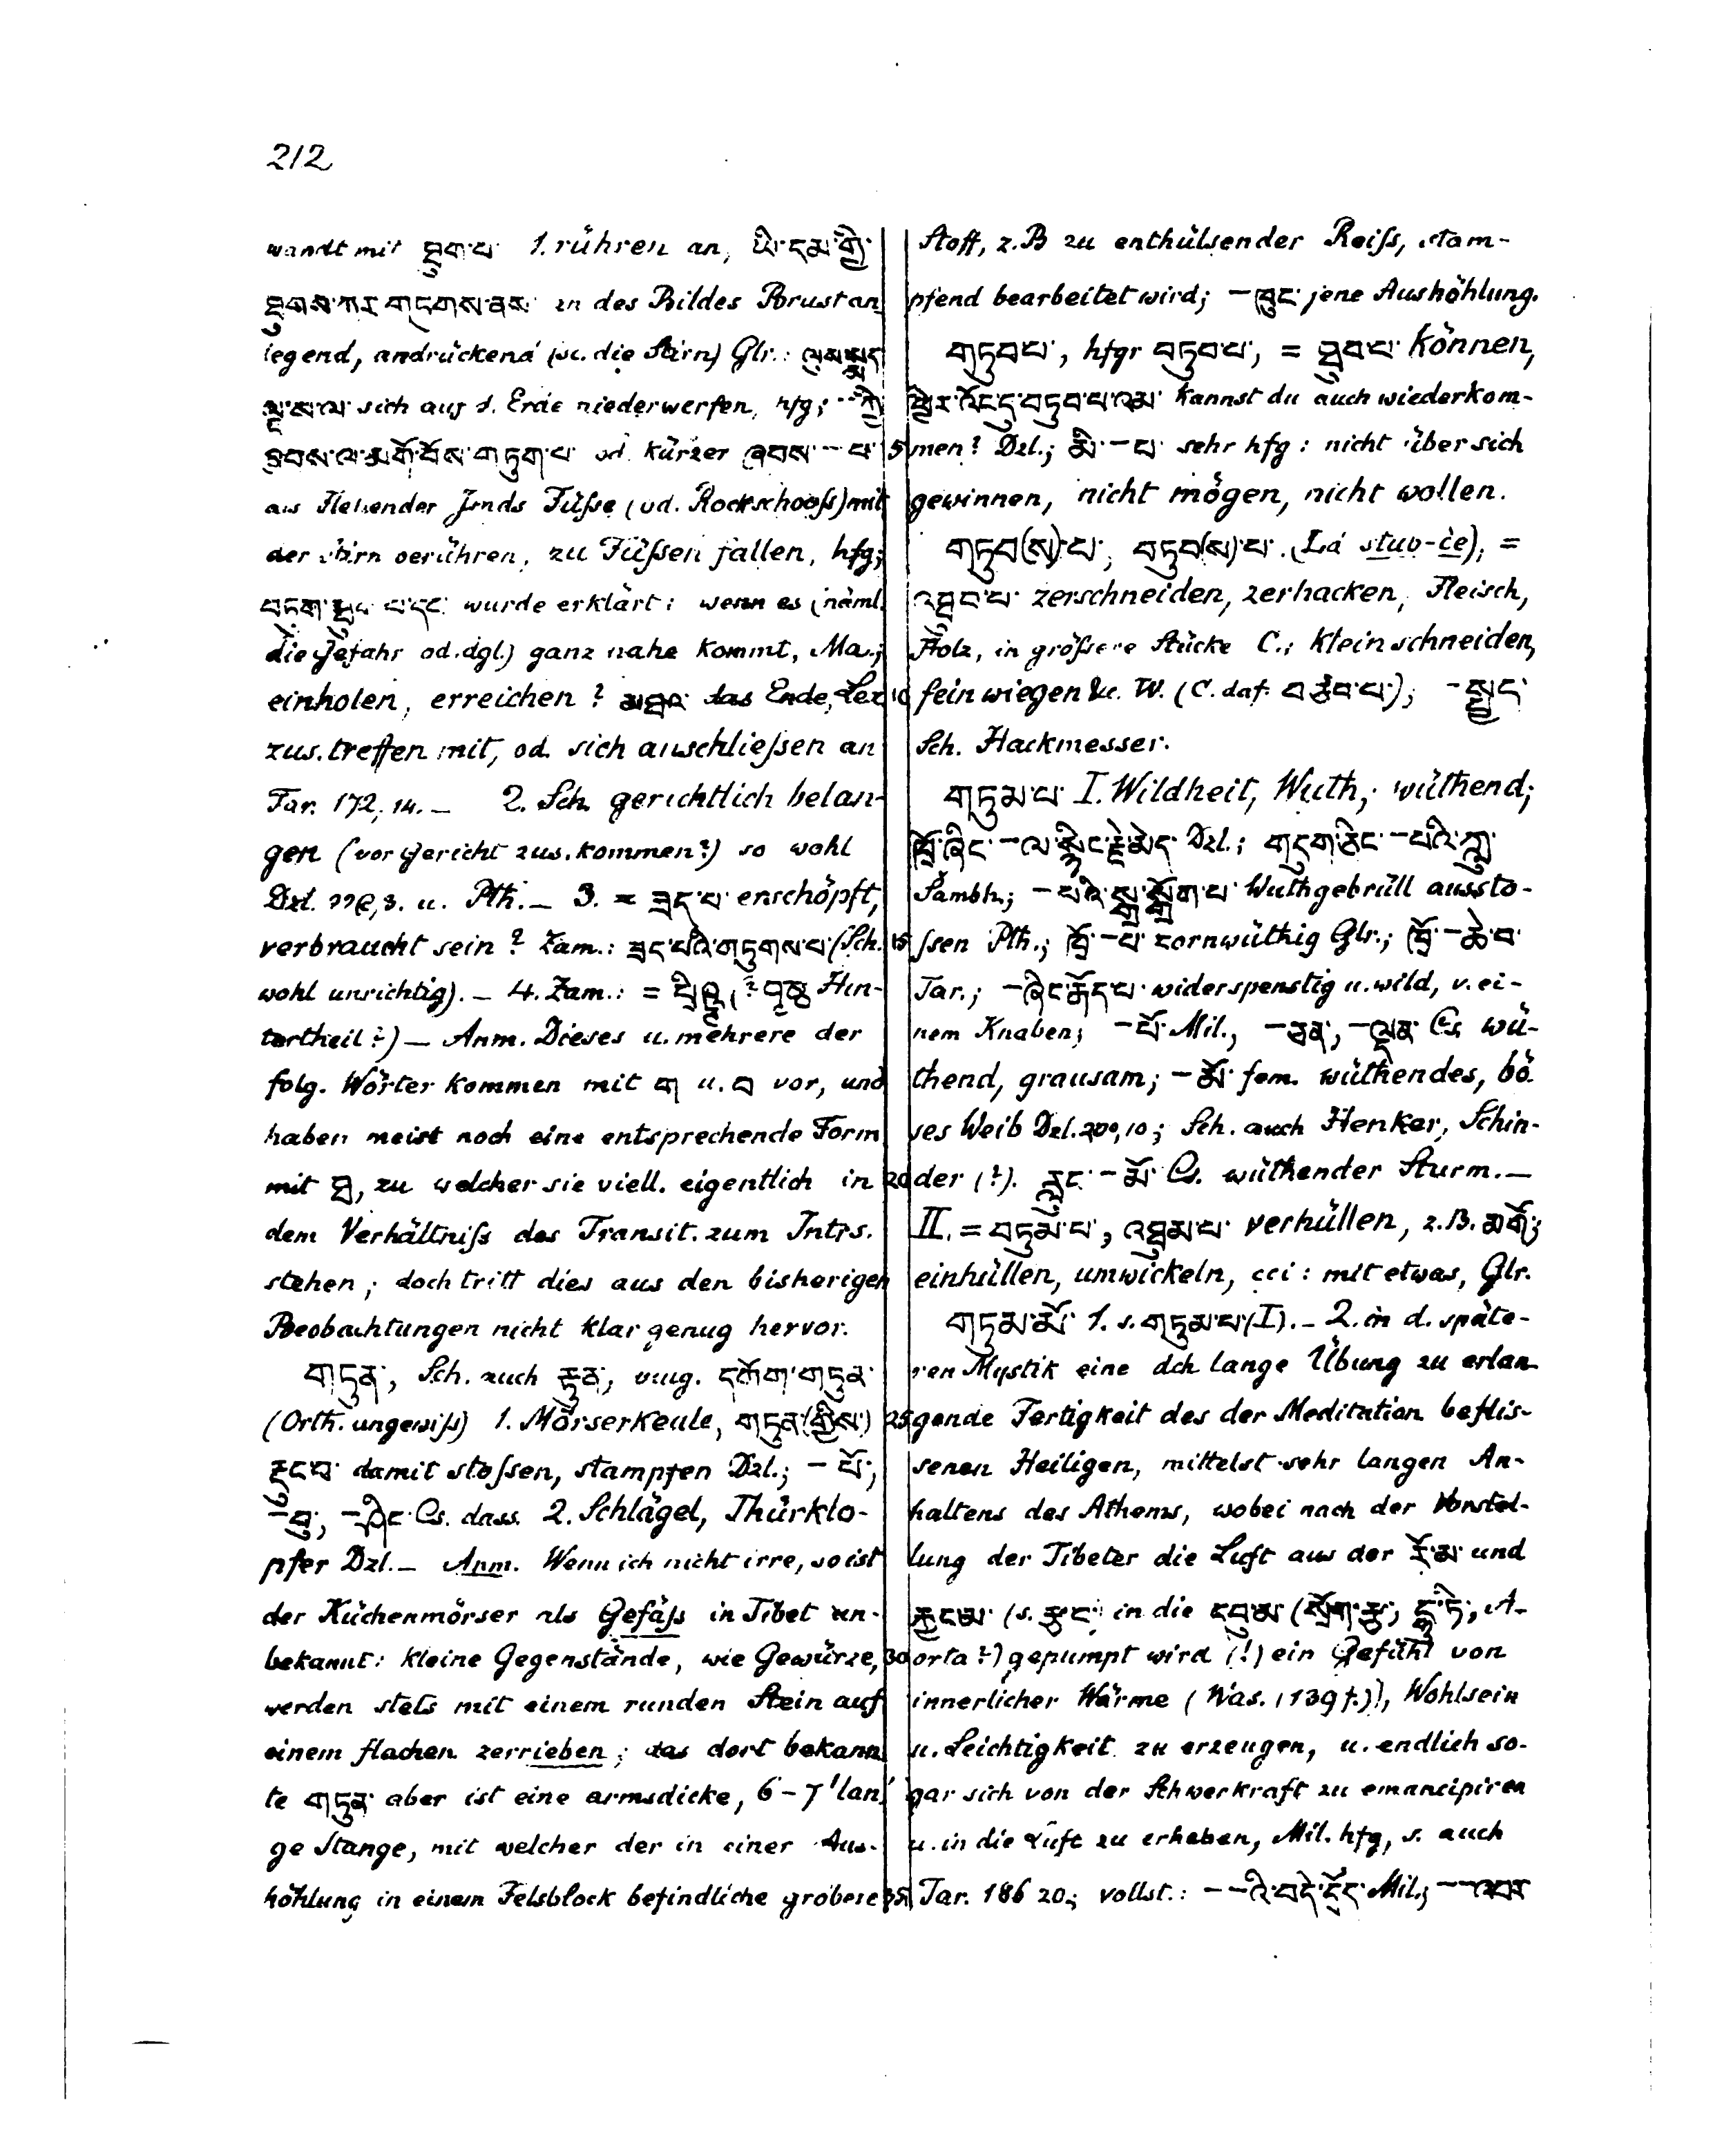 212
wandt mit ཐུག་པ 1. rühren an, ཡི་དམ་གྱི་
ཐུགས་ཀར་གཏུགས་ནས་ an des Bildes Brust an
legend, andrückend (sc. die Stirn) Glr.:
sich auf d. Erde niederwerfen, hfg;
ཞབས་ལ་མགོ་བོས་གཏུག་པ od. kürzer ཞབས་ – པ་
als Flehender Jmds Füsse (od. Rockschooss) mit
der Stirn berühren, zu Füssen fallen, hfg;
wurde erklärt: wenn es (näml.
die Gefahr od. dgl.) ganz nahe kommt, Ma.;
einholen, erreichen? མཐའ་ das Ende, Lex
zus. treffen mit, od. sich anschliessen an
Tar. 172, 14. — 2. Sch. gerichtlich belan-
gen (vor Gericht zus. kommen?) so wohl
Dzl. ༢༢༩, 3. u. Pth. — 3. = ཟད་པ་ erschöpft,
verbraucht sein? Zam.: ཟད་པའི་གཏུགས་པ་ (Sch.
wohl unrichtig). — 4. Zam.: = Hin-
tertheil?) — Anm. Dieses u. mehrere der
folg. Wörter kommen mit ག u. བ vor, und
haben meist noch eine entsprechende Form
mit ཐ, zu welcher sie viell. eigentlich in
dem Verhältniss des Transit. zum Intrs.
stehen; doch tritt dies aus den bisherigen
Beobachtungen nicht klar genug hervor.
གཏུན་, Sch. auch རྟུན་, vulg. དཀོག་གཏུན་
(Orth. ungewiss) 1. Mörserkeule, གཏུན་(གྱིས་)
རྡུང་བ་ damit stossen, stampfen Dzl.; – པོ་,
– བུ་, – ཤིང་ Cs. dass. 2. Schlägel, Thürklo-
pfer Dzl. — Anm. Wenn ich nicht irre, so ist
der Küchenmörser als Gefäss in Tibet un-
bekannt: kleine Gegenstände, wie Gewürze,
werden stets mit einem runden Stein auf
einem flachen zerrieben; das dort bekann
te གཏུན་ aber ist eine armsdicke, 6 – 7' lan
ge Stange, mit welcher der in einer Aus-
höhlung in einem Felsblock befindliche gröbere
Stoff, z. B zu enthülsender Reiss, stam-
pfend bearbeitet wird; – ཁུང་ jene Aushöhlung.
གཏུབ་པ་, hfgr བཏུབ་པ་, = ཐུབ་པ་ können,
ཕྱིར་འོང་དུ་བཏུབ་པ་འམ་ kannst du auch wiederkom-
5 men? Dzl.; མི་ – པ་ sehr hfg: nicht über sich
gewinnen, nicht mögen, nicht wollen.
གཏུབ(ས)་པ་, བཏུབ(ས)་པ་. (Ld stub-c̀e), =
འཐུབ་པ་ zerschneiden, zerhacken, Fleisch,
Holz, in grössere Stücke C.; klein schneiden,
10 fein wiegen &c. W. (C. daf. བཙབ་པ་); – སྤྱད་
Sch. Hackmesser.
གཏུམ་པ་ I. Wildheit, Wuth; wüthend;
ཁྲོ་ཞིང་ – ལ་སྙིང་རྗེ་མེད་ Dzl.; གདུག་ཅིང་ – པའི་ཀླུ་
Sambh.; – པའི་སྒྲ་སྒྲོག་པ་ Wuthgebrüll aussto-
15 ssen Pth.; ཁྲོ་ – པ་ zornwüthig Glr.; ཁྲོ་ – ཆེ་བ་
Tar.; – ཞིང་རྒོད་པ་ widerspenstig u. wild, v. ei-
nem Knaben; – པོ་ Mil., – ཅན་, – ལྡན་ Cs wü-
thend, grausam; – མོ་ fem. wüthendes, bö
ses Weib Dzl. ༢༠༠, 10; Sch. auch Henker, Schin-
20 der (?). རླུང་ – མོ་ Cs. wüthender Sturm. —
II. = བཏུམ་པ་, འཐུམ་པ་ verhüllen, z. B. མགོ་;
einhüllen, umwickeln, cci: mit etwas, Glr.
གཏུམ་མོ་ 1. s. གཏུམ་པ་ (I). — 2. in d. späte-
ren Mystik eine dch lange Übung zu erlan
25 gende Fertigkeit des der Meditation beflis-
senen Heiligen, mittelst sehr langen An-
haltens des Athems, wobei nach der Vorstel-
lung der Tibeter die Luft aus der རོ་མ་ und
རྐྱང་མ་ (s. རྩ་) in die དབུ་མ་ (སྲོག་རྩ་, A-
30 orta?) gepumpt wird (!) ein Gefühl von
innerlicher Wärme (Was. (139 f.)), Wohlsein
u. Leichtigkeit zu erzeugen, u. endlich so-
gar sich von der Schwerkraft zu emancipiren
u. in die Luft zu erheben, Mil. hfg, s. auch
35 Tar. 186 20; vollst.: – – འི་བདེ་དྲོད་ Mil.; – – འབར